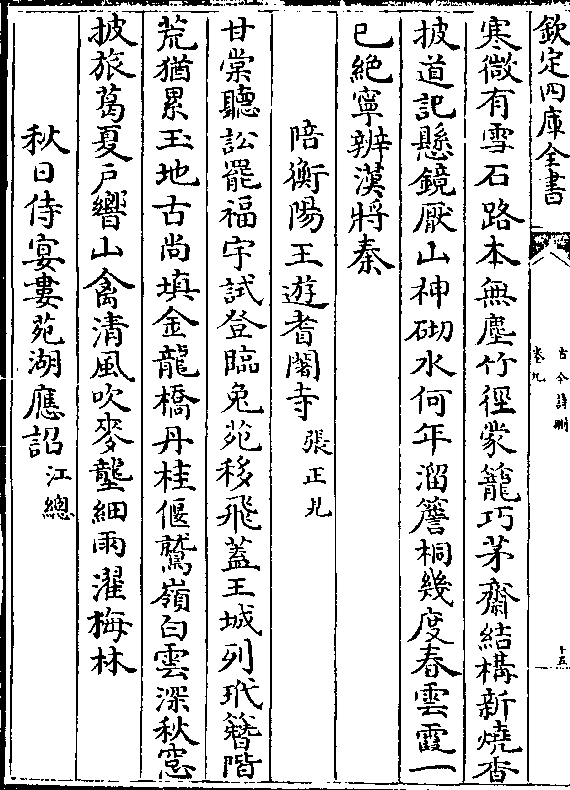 欽定四庫全書
古今詩刪
卷九
十五
寒微有雪石路本無塵竹徑蒙籠巧茅齋結構新燒香
披道記懸鏡厭山神砌水何年溜簷桐幾度春雲霞一
已絶寧辨漢將秦
陪衡陽王遊耆闍寺 張正見
甘棠聽訟罷福宇試登臨兔苑移飛蓋王城列玳簪階
荒猶累玉地古尚填金龍橋丹桂偃鷲嶺白雲深秋窓
披旅葛夏戸響山禽清風吹麥壟細雨濯梅林
秋日侍宴婁苑湖應詔 江總